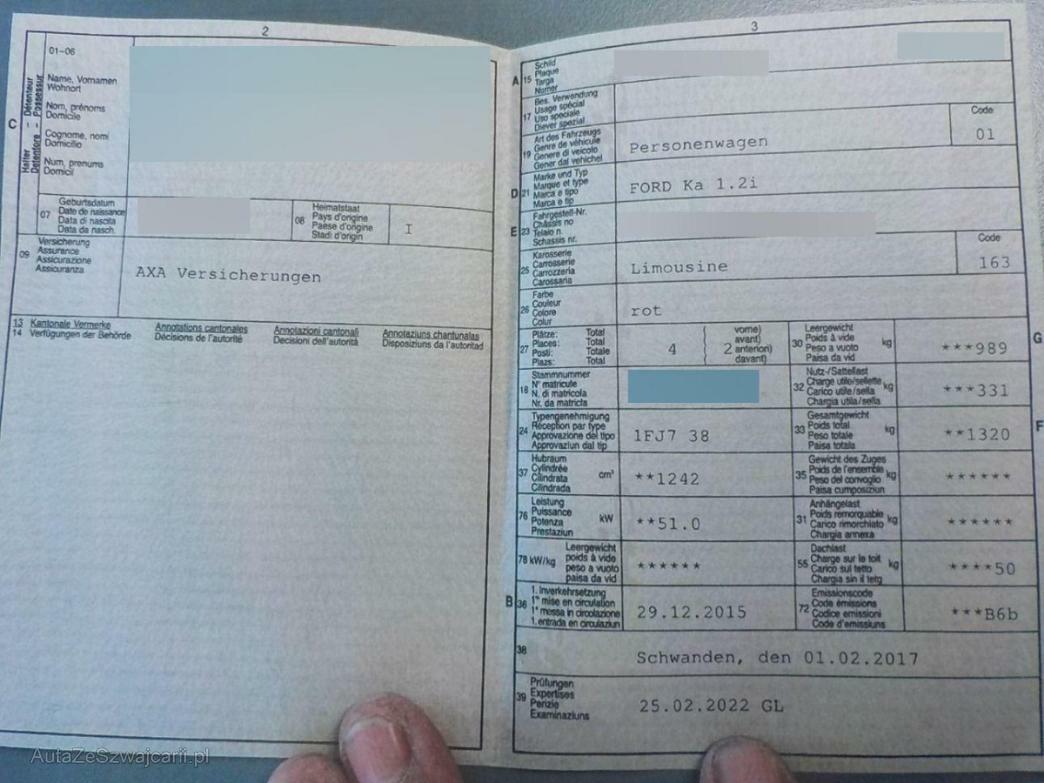 2
01-06
C
Halter - Détenteur
Detentore - Possessur
Name, Vornamen
Wohnort
Nom, prénoms
Domicile
Cognome, nomi
Domicilio
Num, prenums
Domicil
07
Geburtsdatum
Date de naissance
Data di nascita
Data da nasch.
08
Heimatstaat
Pays d'origine
Paese d'origine
Stadi d'origin
I
09
Versicherung
Assurance
Assicurazione
Assicuranza
AXA Versicherungen
13 Kantonale Vermerke Annotations cantonales Annotazioni cantonali Annotaziuns chantunalas
14 Verfügungen der Behörde Décisions de l'autorité Decisioni dell'autorità Disposiziuns da l'autoritad
3
A 15
Schild
Plaque
Targa
Numer
17
Bes. Verwendung
Usage spécial
Uso speciale
Diever spezial
19
Art des Fahrzeugs
Genre de véhicule
Genere di veicolo
Gener dal vehichel
Personenwagen
Code
01
D 21
Marke und Typ
Marque et type
Marca e tipo
Marca e tip
FORD Ka 1.2i
E 23
Fahrgestell-Nr.
Châssis no
Telaio n.
Schassis nr.
25
Karosserie
Carrosserie
Carrozzeria
Carossaria
Limousine
Code
163
26
Farbe
Couleur
Colore
Colur
rot
27
Plätze: Total
Places: Total
Posti: Totale
Plazs: Total
4
2
vorne)
avant)
anteriori)
davant)
30
Leergewicht
Poids à vide
Peso a vuoto
Paisa da vid
kg
***989
G
18
Stammnummer
N° matricule
N. di matricola
Nr. da matricla
32
Nutz-/Sattellast
Charge utile/sellette
Carico utile/sella
Chargia utila/sella
kg
***331
24
Typengenehmigung
Réception par type
Approvazione del tipo
Approvaziun dal tip
1FJ7 38
33
Gesamtgewicht
Poids total
Peso totale
Paisa totala
kg
**1320
F
37
Hubraum
Cylindrée
Cilindrata
Cilindrada
cm³
**1242
35
Gewicht des Zuges
Poids de l'ensemble
Peso del convoglio
Paisa cumposiziun
kg
******
76
Leistung
Puissance
Potenza
Prestaziun
kW
**51.0
31
Anhängelast
Poids remorquable
Carico rimorchiato
Chargia annexa
kg
******
78 kW/kg
Leergewicht
poids à vide
peso a vuoto
paisa da vid
******
55
Dachlast
Charge sur le toit
Carico sul tetto
Chargia sin il tetg
kg
****50
B 36
1. Inverkehrsetzung
1re mise en circulation
1a messa in circolazione
1. entrada en circulaziun
29.12.2015
72
Emissionscode
Code émissions
Codice emissioni
Code d'emissiuns
***B6b
38
Schwanden, den 01.02.2017
39
Prüfungen
Expertises
Perizie
Examinaziuns
25.02.2022 GL
AutaZeSzwajcarii.pl